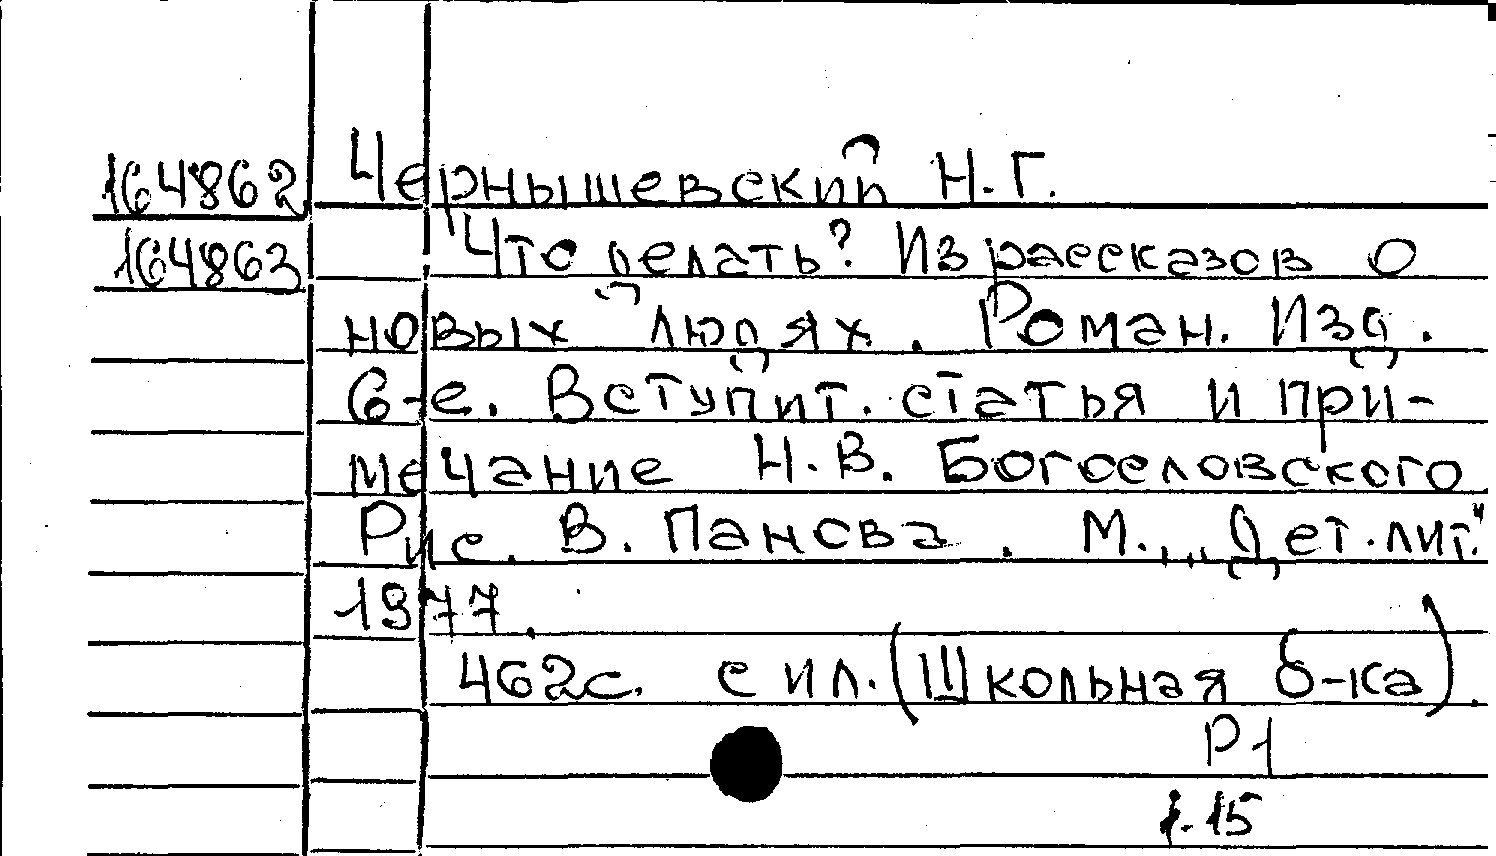 164862 Чернышевский Н.Г.
164863 Что делать? Из рассказов о
новых людях. Роман. Изд.
6-е. Вступит. статья и при-
мечание Н.В. Богословского
Рис. В. Панова. М., „Дет. лит."
1977.
462с. с ил. (Школьная б-ка).
Р1
1.15